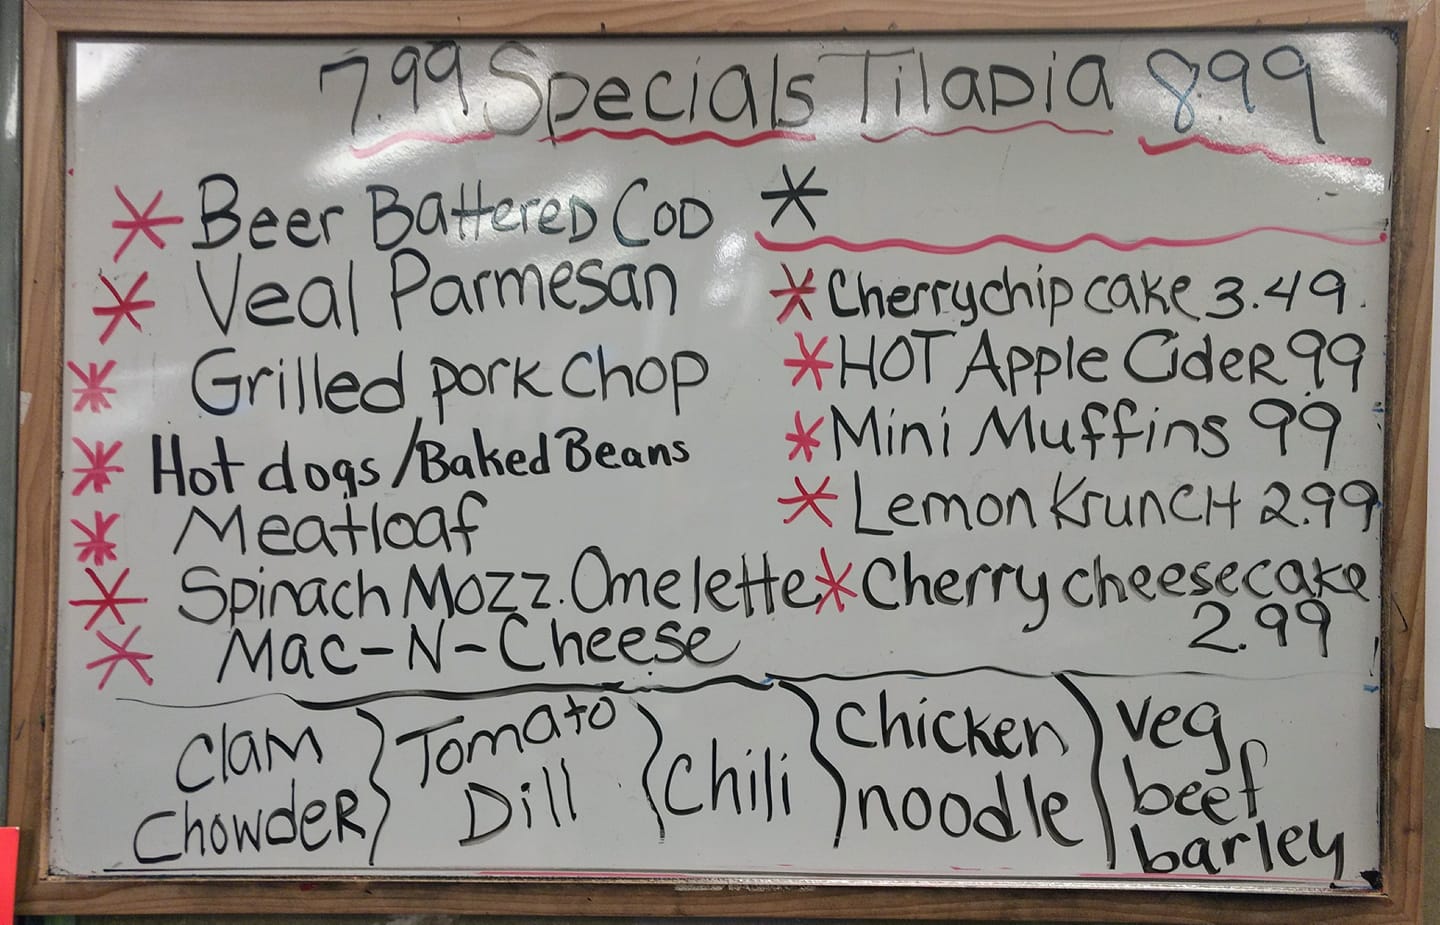 7.99 Specials Tilapia 8.99
* Beer Battered Cod *
* Veal Parmesan
* Grilled pork chop
* Hot dogs/Baked Beans
* Meatloaf
* Spinach Mozz. Omelette
* Mac-N-Cheese
* Cherrychip cake 3.49
* HOT Apple Cider 99
* Mini Muffins 99
* Lemon Krunch 2.99
* Cherry cheesecake
2.99
Clam
Chowder
Tomato
Dill
Chili
Chicken
noodle
Veg
beef
barley